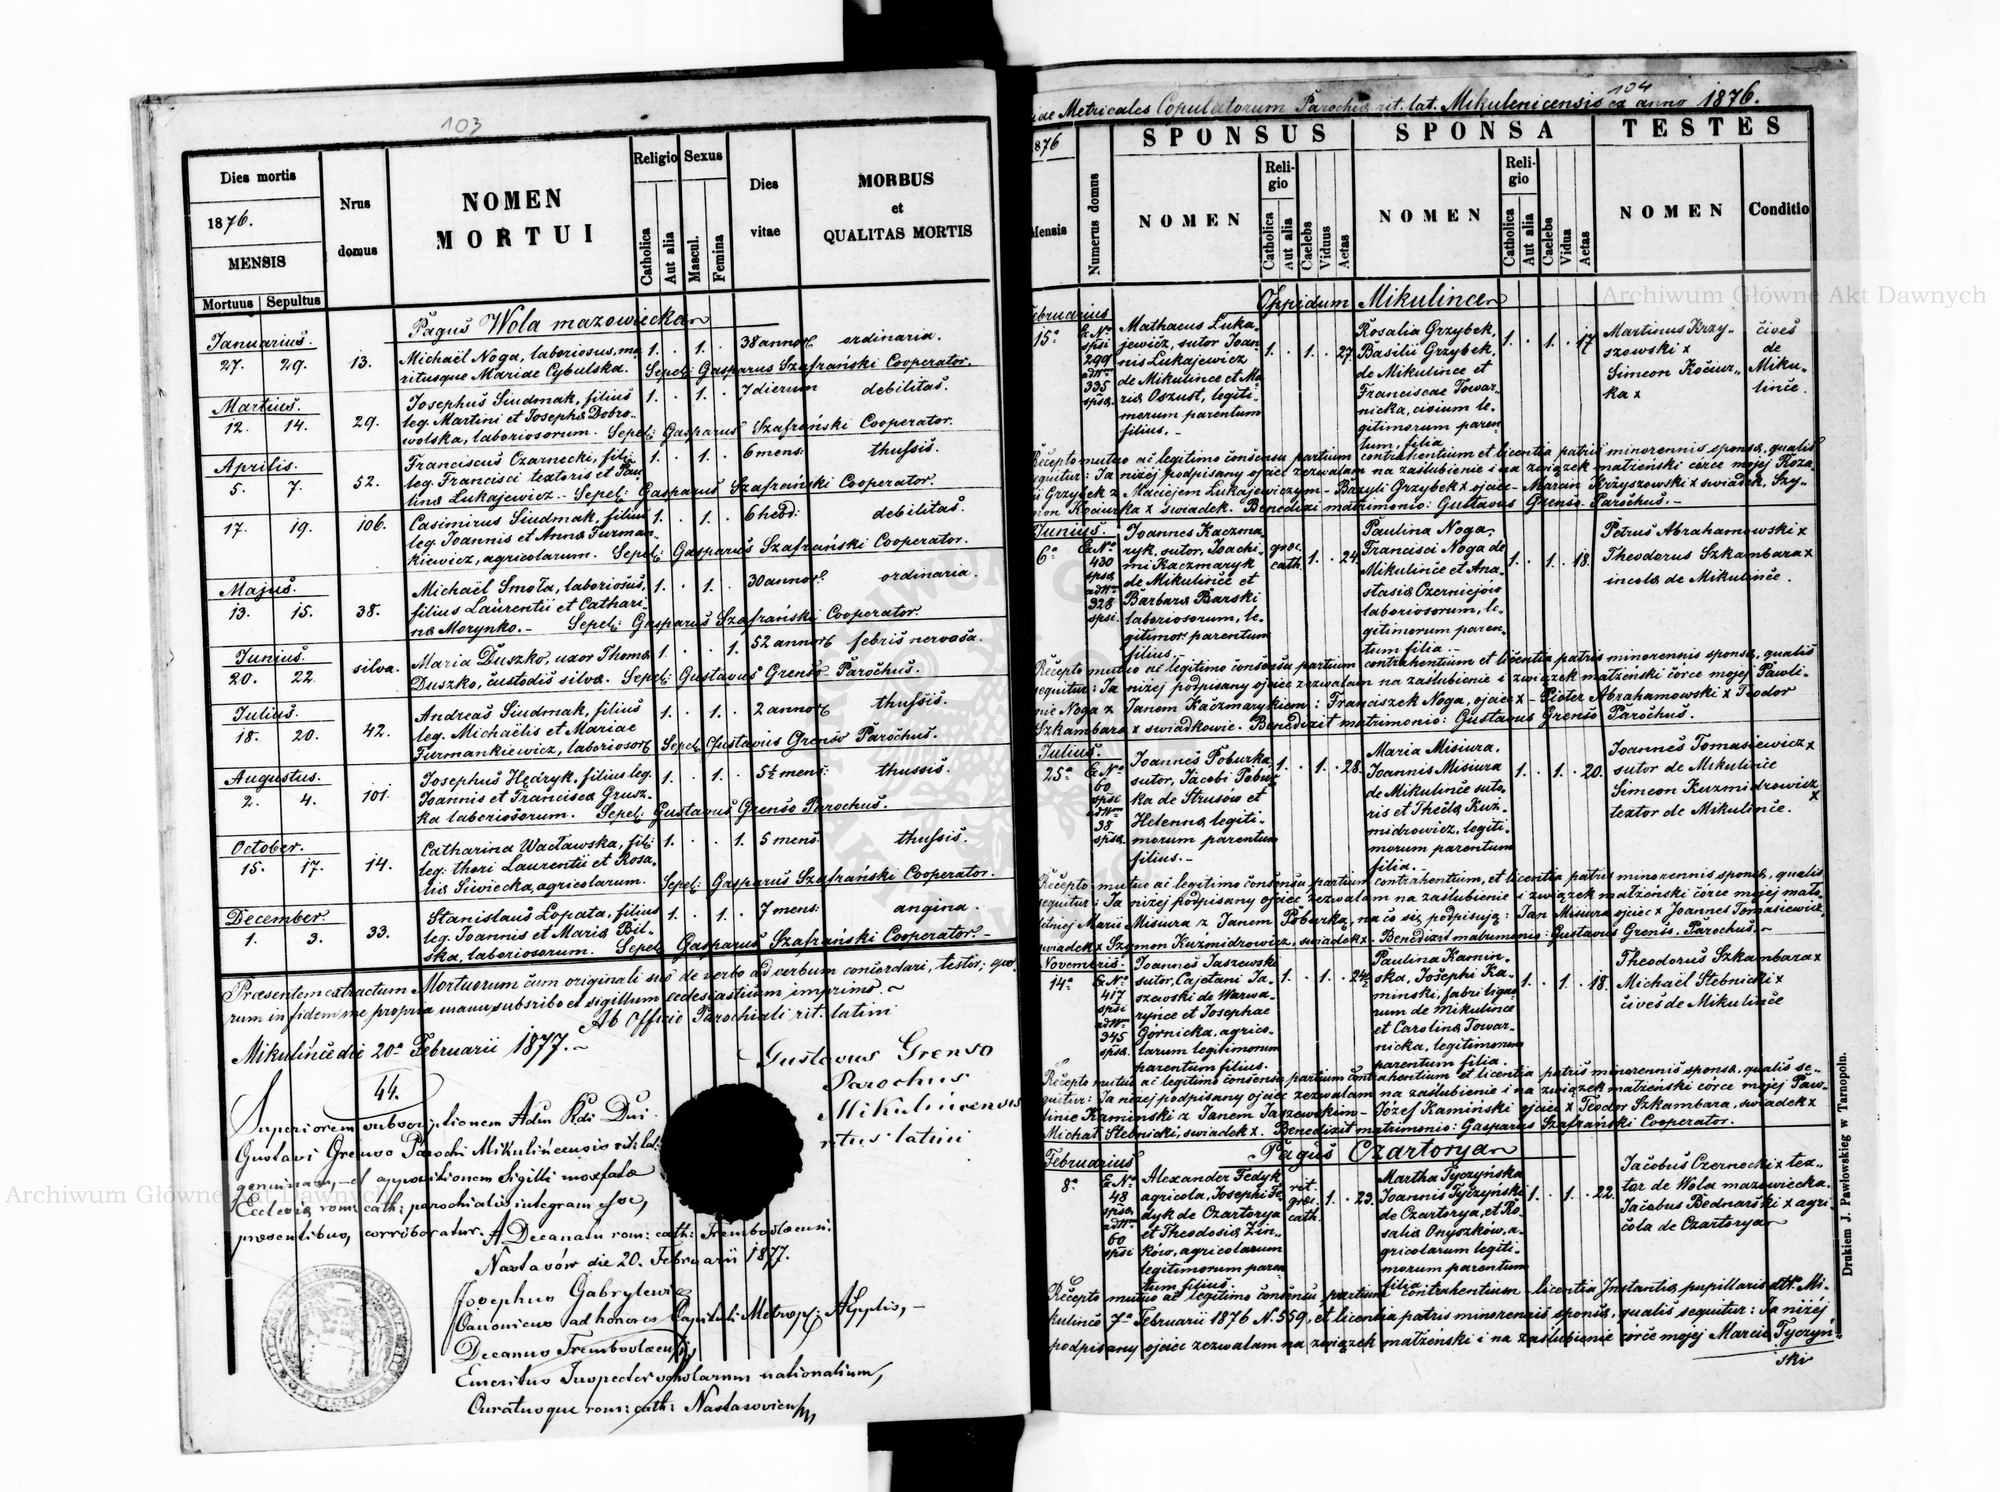 103
Dies mortis
1876.
MENSIS
Mortuus Sepultus
Nrus
domus
NOMEN
MORTUI
Religio
Catholica
Aut alia
Sexus
Mascul.
Femina
Dies
vitae
MORBUS
et
QUALITAS MORTIS
Pagus Wola mazowiecka
Januarius.
27. 29. 13. Michaël Noga, laboriosus, ma- 1. 1. 38 annor ordinaria.
ritusque Mariae Cybulska. Sepel: Gasparus Szafrański Cooperator.
Martius.
12. 14. 29. Josephus Siudmak, filius 1. 1. 7 dierum debilitas.
leg. Martini et Josepha Dobro-
wolska, laboriosorum. Sepel: Gasparus Szafrański Cooperator.
Aprilis.
5. 7. 52. Franciscus Czarnecki, fili: 1. 1. 6 mens: thussis.
leg. Francisci textoris et Pau-
lina Lukajewicz.- Sepel: Gasparus Szafrański Cooperator.
17. 19. 106. Casimirus Siudmak, filius 1. 1. 6 hebd: debilitas.
leg. Joannis et Anna Furman-
kiewicz, agricolarum. Sepel: Gasparus Szafrański Cooperator.
Majus.
13. 15. 38. Michaël Smoła, laboriosus, 1. 1. 30 annor. ordinaria.
filius Laurentii et Cathari-
na Morynko.- Sepel: Gasparus Szafrański Cooperator.
Junius.
20. 22. silva. Maria Duszko, uxor Thoma 1. 1. 52 annor febris nervosa.
Duszko, custodis silva. Sepel: Gustavus Grenso Parochus.
Julius.
18. 20. 42. Andreas Siudmak, filius 1. 1. 2 annor thussis.
leg. Michaëlis et Mariae
Furmankiewicz, laboriosor Sepel: Gustavus Grenso Parochus.
Augustus.
2. 4. 101. Josephus Hędryk, filius leg. 1. 1. 5½ mens: thussis.
Joannis et Francisca Grusz-
ka laboriosorum. Sepel: Gustavus Grenso Parochus.
October.
15. 17. 14. Catharina Wacławska, fili: 1. 1. 5 mens: thussis.
leg: thori Laurentii et Rosa-
lia Siwiecka, agricolarum. Sepel: Gasparus Szafrański Cooperator.
December.
1. 3. 33. Stanislaus Lopata, filius 1. 1. 7 mens: angina.
leg. Joannis et Maria Bil-
ska, laboriosorum. Sepel: Gasparus Szafrański Cooperator.-
Praesentem extractum Mortuorum cum originali suo de verbo ad verbum concordari, testor; quo-
rum in fidem me propria manu subscribo et sigillum ecclesiasticum imprimo.
Ab Officio Parochiali rit. latini
Mikulińce die 20a Februarii 1877.
Gustavus Grenso
Parochus
Mikulincensis
ritus latini
44.
Superiorem subscriptionem Adm Rdi Dni
Gustavi Grenso Parochi Mikulińcensis rit: lat:
genuinam, et appositionem Sigilli
Ecclesia rom: cath: parochialis integram esse,
praesentibus, corroboratur. A Decanatu rom: cath: Trembovlaensi.
Nastasów die 20. Februarii 1877.
Josephus Gabrylewicz
Canonicus ad honores Capituli Metrop:
Decanus Trembovlaensis
Emeritus Inspector scholarum nationalium,
Curatusque rom: cath: Nastasoviensis
104
Metricales Copulatorum Parochia rit. lat. Mikulenicensis ex anno 1876.
1876
Mensis
Numerus domus
SPONSUS
NOMEN
Religio
Catholica
Aut alia
Caelebs
Viduus
Aetas
SPONSA
NOMEN
Religio
Catholica
Aut alia
Caelebs
Vidua
Aetas
TESTES
NOMEN
Conditio
Oppidum Mikulince
Februarius
15a Ex No spsi 299 ad Nm 335 spsa.
Mathaeus Luka-
jewicz, sutor Joan-
nis Lukajewicz
de Mikulince et Ma-
ria Oszust, legiti-
morum parentum
filius.-
1. 1. 27.
Rosalia Grzybek,
Basilii Grzybek,
de Mikulince et
Franciscae Towar-
nicka, civium le-
gitimorum paren-
tum, filia
1. 1. 17
Martinus Krzy-
szowski x
Simeon Kociur-
ka x
cives
de
Miku-
lince.
Recepto mutuo ac legitimo consensu partium contrahentium et licentia patris minorennis sponsa, qualis
sequitur: Ja niżej podpisany ojciec zezwalam na zaślubienie i na związek małżeński córce mojej Roza-
lii Grzybek z Maciejem Lukajewiczym - Bazyli Grzybek x ojciec - Marcin Krzyszowski x świadek, Szy-
mon Kociurka x świadek. Benedixi matrimonio: Gustavus Grenso. Parochus.-
Junius.
6a Ex No 430 spsa ad Nm 328 spsi.
Joannes Kaczma-
ryk, sutor, Joachi-
mi Kaczmaryk
de Mikulince et
Barbara Barski
laboriosorum, le-
gitimor. parentum
filius.-
graec. cath. 1. 24.
Paulina Noga,
Francisci Noga de
Mikulince et Ana-
stasia Czerniejów
laboriosorum, le-
gitimorum paren-
tum filia.-
1. 1. 18.
Petrus Abrahamowski x
Theodorus Szkambara x
incola de Mikulince.
Recepto mutuo ac legitimo consensu partium contrahentium et licentia patris minorennis sponsa, qualis
sequitur: Ja niżej podpisany ojciec zezwalam na zaślubienie i związek małżeński córce mojej Pawli-
nie Noga x Janem Kaczmarykiem: Franciszek Noga, ojciec x - Piotr Abrahamowski x Teodor
Szkambara x świadkowie. Benedixit matrimonio: Gustavus Grenso Parochus.
Julius.
25a Ex No 60 spsi ad Nm 38 spsa.
Joannes Poburka,
sutor, Jacobi Pobur-
ka de Strusów et
Helenna, legiti-
morum parentum
filius.-
1. 1. 28.
Maria Misiura,
Joannis Misiura
de Mikulince suto-
ris et Thecla Kuz-
midrowicz, legiti-
morum parentum
filia.-
1. 1. 20.
Joannes Tomasiewicz x
sutor de Mikulince
Simeon Kuzmidrowicz x
textor de Mikulince.
Recepto mutuo ac legitimo consensu partium contrahentium, et licentia patris minorennis sponsa, qualis
sequitur: Ja niżej podpisany ojciec zezwalam na zaślubienie i związek małżeński córce mojej mało-
letniej Marii Misiura z Janem Poburką, na co się podpisują: Jan Misiura ojciec x Joannes Tomasiewicz,
świadek x Szymon Kuzmidrowicz, świadek x - Benedixit matrimonio: Gustavus Grenso, Parochus.-
Novembris.
14a Ex No 417 spsi ad Nm 345 spsa.
Joannes Jaszewski
sutor, Cajetani Ja-
szewski de Warwa-
rynce et Josephae
Górnicka, agrico-
larum legitimorum
parentum filius.
1. 1. 24
Paulina Kamin-
ska, Josephi Ka-
minski, fabri ligna-
rum de Mikulince
et Carolina Towar-
nicka, legitimorum
parentum filia.
1. 1. 18.
Theodorus Szkambara x
Michaël Stebnicki x
cives de Mikulince
Recepto mutuo ac legitimo consensu partium contrahentium et licentia patris minorennis sponsa, qualis se-
quitur: Ja niżej podpisany ojciec zezwalam na zaślubienie i na związek małżeński córce mojej Paw-
linie Kaminski z Janem Jaszewskim - Józef Kamiński ojciec x Teodor Szkambara, świadek x
Michał Stebnicki, świadek x. Benedixit matrimonio: Gasparus Szafrański Cooperator.
Pagus Czartorya
Februarius
8a Ex No 48 spsa ad Nm 60 spsi
Alexander Fedyk
agricola, Josephi Fe-
dyk de Czartorya
et Theodosia Zin-
ków, agricolarum
legitimorum paren-
tum filius.
rit. graec. cath. 1. 23.
Martha Tyczyńska
Joannis Tyczyński
de Czartorya, et Ro-
salia Onyszków, a-
gricolarum legiti-
morum parentum
filia.-
1. 1. 22.
Jacobus Czernecki x tex-
tor de Wola mazowiecka.
Jacobus Bednarski x agri-
cola de Czartorya
Recepto mutuo ac legitimo consensu partium contrahentium - licentia Instantia pupillaris dtto Mi-
kulince 7a Februarii 1876 N. 559, et licentia patris minorennis sponsa, qualis sequitur: Ja niżej
podpisany ojciec zezwalam na związek małżeński i na zaślubienie córce mojej Marcie Tyczyń-
ski
Drukiem J. Pawłowskieg w Tarnopolu.
Archiwum Główne Akt Dawnych
Archiwum Główne Akt Dawnych